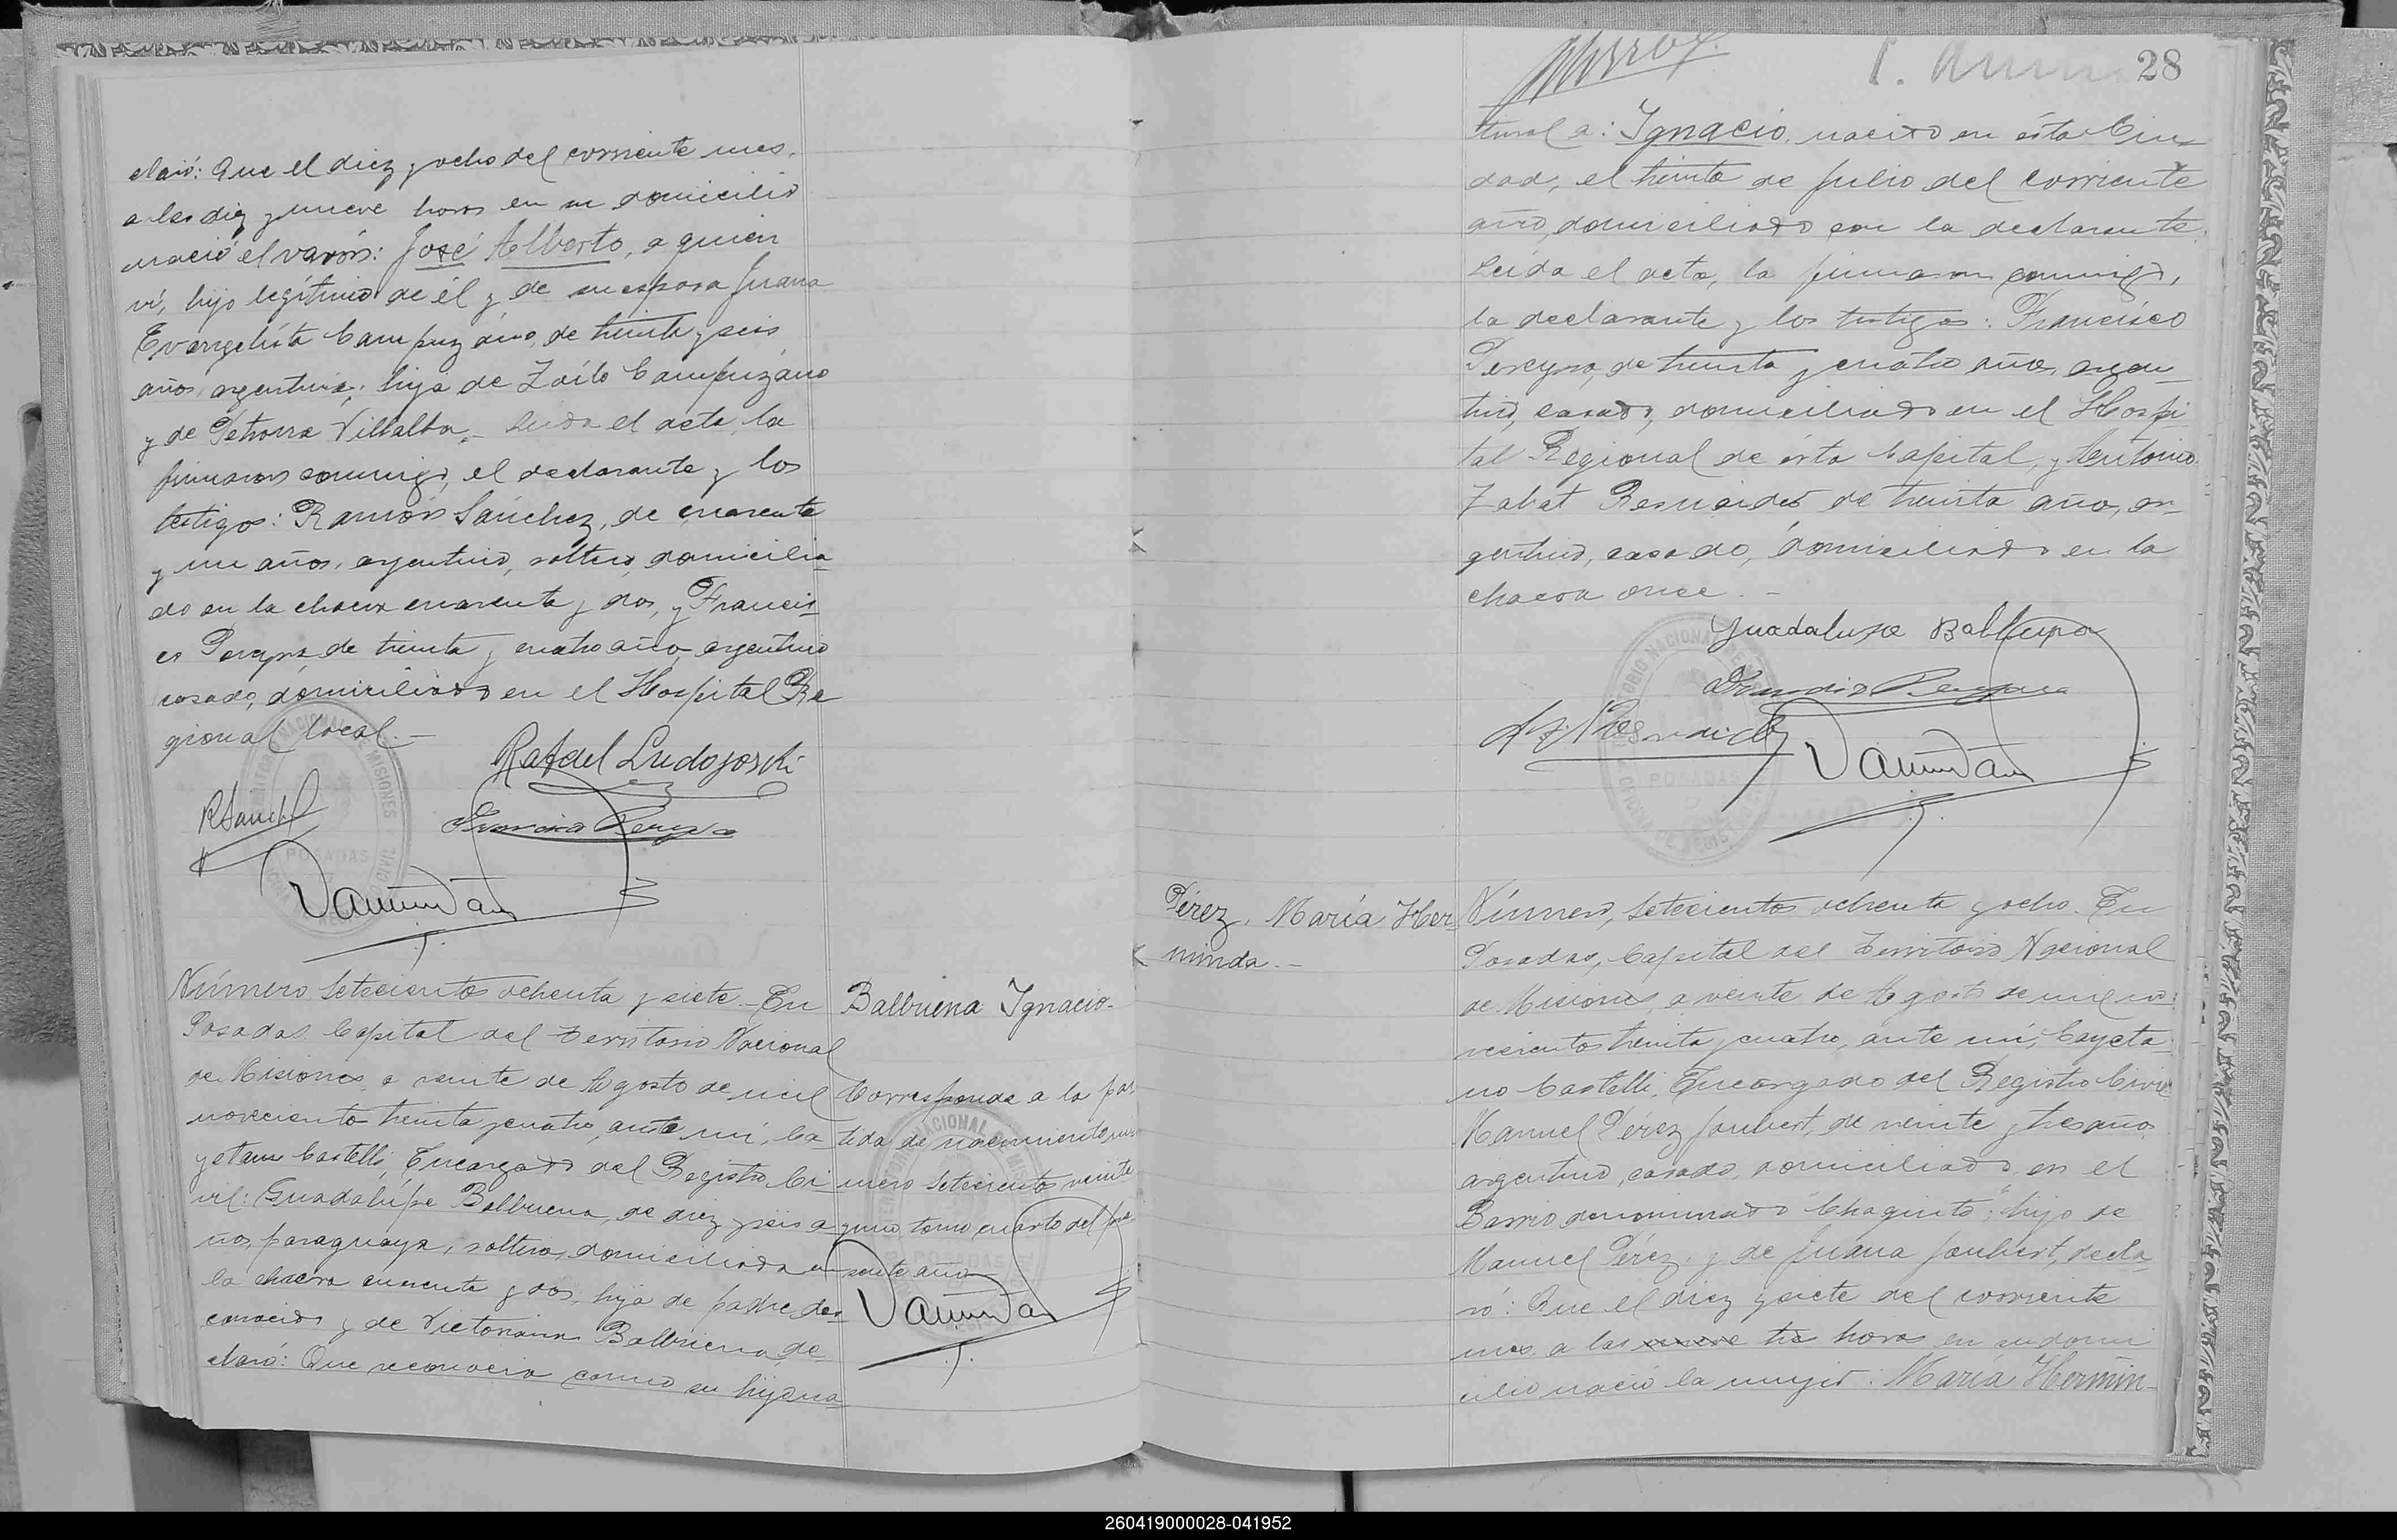 claró: Que el diez y ocho del corriente mes,
a las diez y nueve horas en su domicilio
nació el varón: José Alberto, a quien
ví, hijo legítimo de él y de su esposa Juana
Evangelista Campuzano, de treinta y seis
años, argentina, hija de Zoilo Campuzano
y de Petrona Villalba.- Leída el acta, la
firmaron conmigo, el declarante y los
testigos: Ramón Sánchez, de cuarenta
y un años, argentino, soltero, domicilia
do en la chacra cuarenta y dos, y Francis
co Pereyra de treinta y cuatro años, argentino
casado, domiciliado en el Hospital Re
gional local.-
Rafael Ludojoski
RSánchez
Francisco Pereyra
POSADAS
Número, Setecientos ochenta y siete.- En
Posadas, Capital del Territorio Nacional
de Misiones, a veinte de Agosto de mil
novecientos treinta y cuatro, ante mí, Ca
yetano Castelli, Encargado del Registro Ci
vil: Guadalúpe Balbuena, de diez y seis a
ños, paraguaya, soltera, domiciliada en
la chacra cuarenta y dos, hija de padre des
conocido y de Victoriana Balbuena, de
claró: Que reconocía como su hijo na
Balbuena Ignacio.-
Corresponde a la par
tida de nacimiento nú
mero Setecientos veinte
y uno, tomo cuarto del pre
sente año
28
tural a: Ignacio, nacido en ésta Ciu
dad, el treinta de Julio del corriente
año, domiciliado con la declarante.
Leída el acta, la firmaron conmigo,
la declarante y los testigos: Francisco
Pereyra, de treinta y cuatro años, argen
tino, casado, domiciliado en el Hospi
tal Regional de ésta Capital, y Antonio
Zabat Resnaider de treinta años, ar
gentino, casado, domiciliado en la
chacra once.-
Guadalupe Balbuena
Francisco Pereyra
POSADAS
Pérez, María Her
minda.-
Número, Setecientos ochenta y ocho. En
Posadas, Capital del Territorio Nacional
de Misiones, a veinte de Agosto de mil no
vecientos treinta y cuatro, ante mí, Cayeta
no Castelli, Encargado del Registro Civil
Manuel Pérez Joubert, de veinte y tres años
argentino, casado, domiciliado en el
Barrio denominado "Chaquito", hijo de
Manuel Pérez y de Juana Joubert, decla
ró: Que el diez y siete del corriente
mes, a las nueve tres horas en su domi
cilio nació la mujer: María Hermin-
260419000028-041952